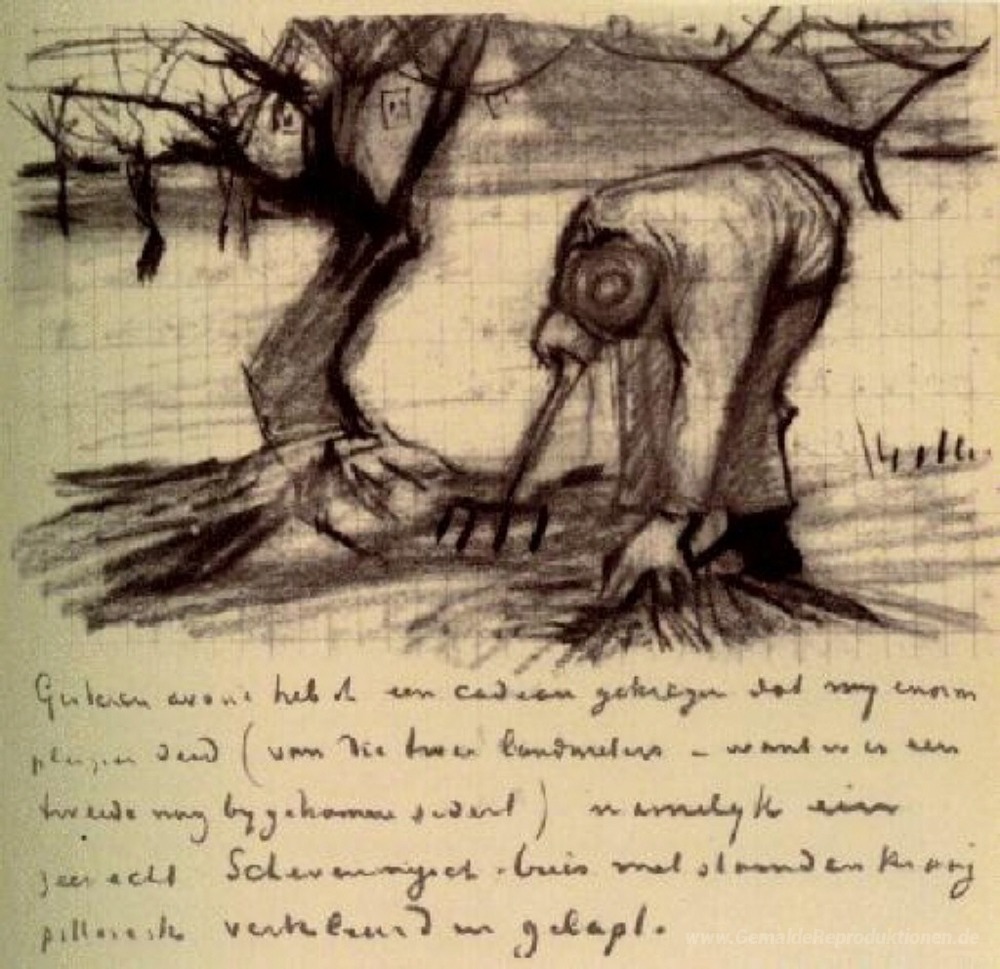 Gisteren avond heb ik een cadeau gekregen dat my enorm
pleizier deed (van die twee landmeters – want er is een
tweede nog bygekomen sedert) namelyk een
zeer echt Scheveningsch buis met staanden kraag
pittoresk verkleurd en gelapt.
www.GemaldeReproduktionen.de